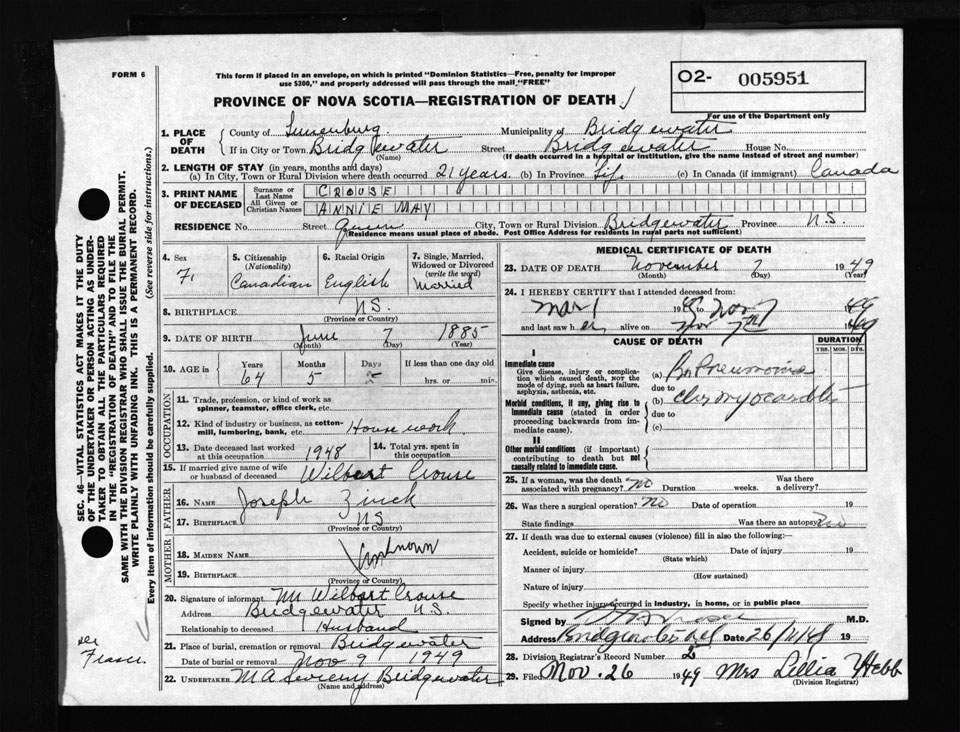 FORM 6
This form if placed in an envelope, on which is printed "Dominion Statistics—Free, penalty for improper
use $300," and properly addressed will pass through the mail "FREE"
O2- 005951
For use of the Department only
PROVINCE OF NOVA SCOTIA—REGISTRATION OF DEATH
1. PLACE OF DEATH
County of Lunenburg Municipality of Bridgewater
If in City or Town Bridgewater Street Bridgewater House No.
(Name) (If death occurred in a hospital or institution, give the name instead of street and number)
2. LENGTH OF STAY (in years, months and days)
(a) In City, Town or Rural Division where death occurred 21 years. (b) In Province Life (c) In Canada (if immigrant) Canada
3. PRINT NAME OF DECEASED
Surname or Last Name CROUSE
All Given or Christian Names ANNIE MAY
RESIDENCE No. Street Queen City, Town or Rural Division Bridgewater Province N.S.
(Residence means usual place of abode. Post Office Address for residents in rural parts not sufficient)
4. Sex F
5. Citizenship (Nationality) Canadian
6. Racial Origin English
7. Single, Married, Widowed or Divorced (write the word) Married
8. BIRTHPLACE N.S.
(Province or Country)
9. DATE OF BIRTH June 7 1885
(Month) (Day) (Year)
10. AGE in Years Months Days If less than one day old
64 5 hrs. or min.
OCCUPATION
11. Trade, profession, or kind of work as spinner, teamster, office clerk, etc.
12. Kind of industry or business, as cotton-mill, lumbering, bank, etc. House work
13. Date deceased last worked at this occupation 1948
14. Total yrs. spent in this occupation
15. If married give name of wife or husband of deceased Wilbert Crouse
FATHER
16. NAME Joseph Zinck
17. BIRTHPLACE N.S.
(Province or Country)
MOTHER
18. MAIDEN NAME Unknown
19. BIRTHPLACE
(Province or Country)
20. Signature of informant Mr Wilbert Crouse
Address Bridgewater N.S.
Relationship to deceased Husband
21. Place of burial, cremation or removal Bridgewater
Date of burial or removal Nov 9 1949
22. UNDERTAKER M A Bridgewater
(Name and address)
MEDICAL CERTIFICATE OF DEATH
23. DATE OF DEATH November 7 1949
(Month) (Day) (Year)
24. I HEREBY CERTIFY that I attended deceased from:
Mar 1 19 to Nov 7 49
and last saw her alive on Nov 7th 1949
CAUSE OF DEATH DURATION
YRS. MOS. DYS.
I
Immediate cause
Give disease, injury or complication which caused death, not the mode of dying, such as heart failure, asphyxia, asthenia, etc.
(a) Bn Pneumonia
due to
Morbid conditions, if any, giving rise to immediate cause (stated in order proceeding backwards from immediate cause).
(b) chr myocarditis
due to
(c)
II
Other morbid conditions (if important) contributing to death but not causally related to immediate cause.
25. If a woman, was the death associated with pregnancy? no Duration weeks. Was there a delivery?
26. Was there a surgical operation? no Date of operation 19
State findings Was there an autopsy? no
27. If death was due to external causes (violence) fill in also the following:—
Accident, suicide or homicide? Date of injury 19
(State which)
Manner of injury
(How sustained)
Nature of injury
Specify whether injury occurred in industry, in home, or in public place
Signed by M.D.
Address Bridgewater Date 26/11/49 19
28. Division Registrar's Record Number
29. Filed Nov. 26 1949 Mrs Lellia Hebb
(Division Registrar)
SEC. 46—VITAL STATISTICS ACT MAKES IT THE DUTY
OF THE UNDERTAKER OR PERSON ACTING AS UNDER-
TAKER TO OBTAIN ALL THE PARTICULARS REQUIRED
IN THE "REGISTRATION OF DEATH" AND TO FILE THE
SAME WITH THE DIVISION REGISTRAR WHO SHALL ISSUE THE BURIAL PERMIT.
WRITE PLAINLY WITH UNFADING INK. THIS IS A PERMANENT RECORD.
Every item of information should be carefully supplied. (See reverse side for instructions.)
per
Fraser.